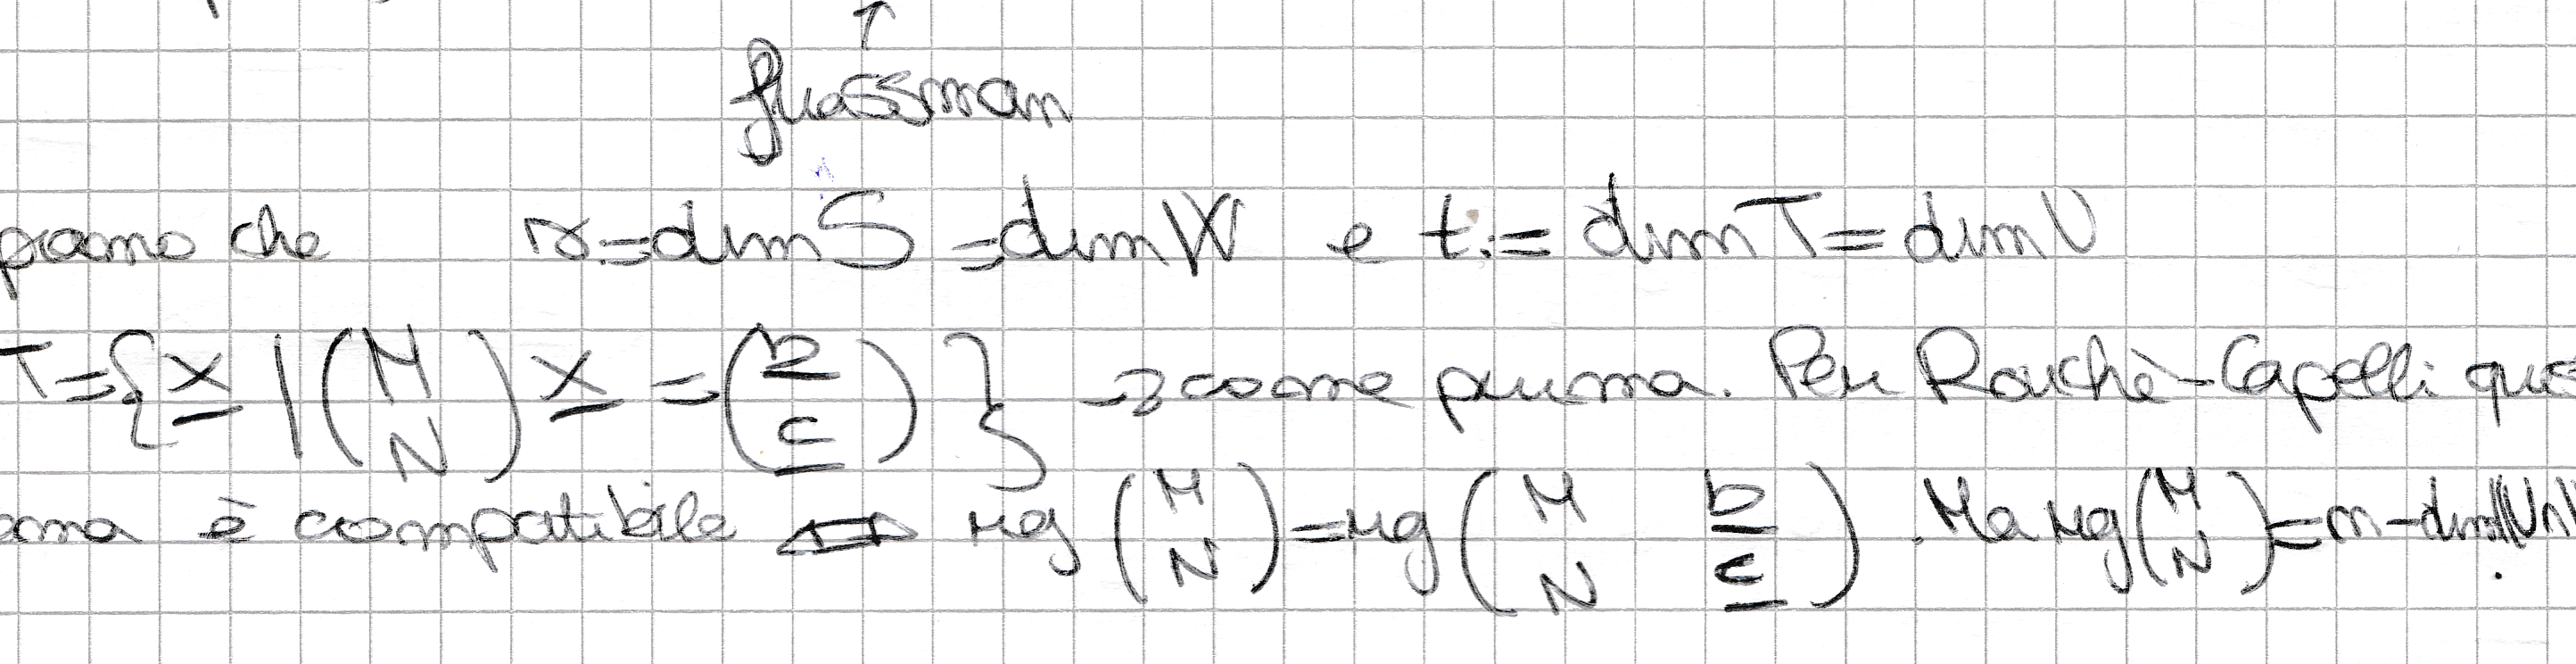 ↑
grassman
piamo che r := dim S = dim W e t := dim T = dim U
T = { x | (M N) x = (b c) } → come prima. Per Rouchè-Capelli que
ema è compatibile ⇔ rg (M N) = rg (M b N c) . Ma rg (M N) = n - dim (U∩